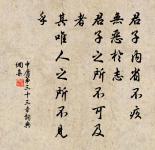 君子内省不疚
無惡於志
君子之所不可及
者
其唯人之所不見
乎
中庸第三十三章詞典
網集